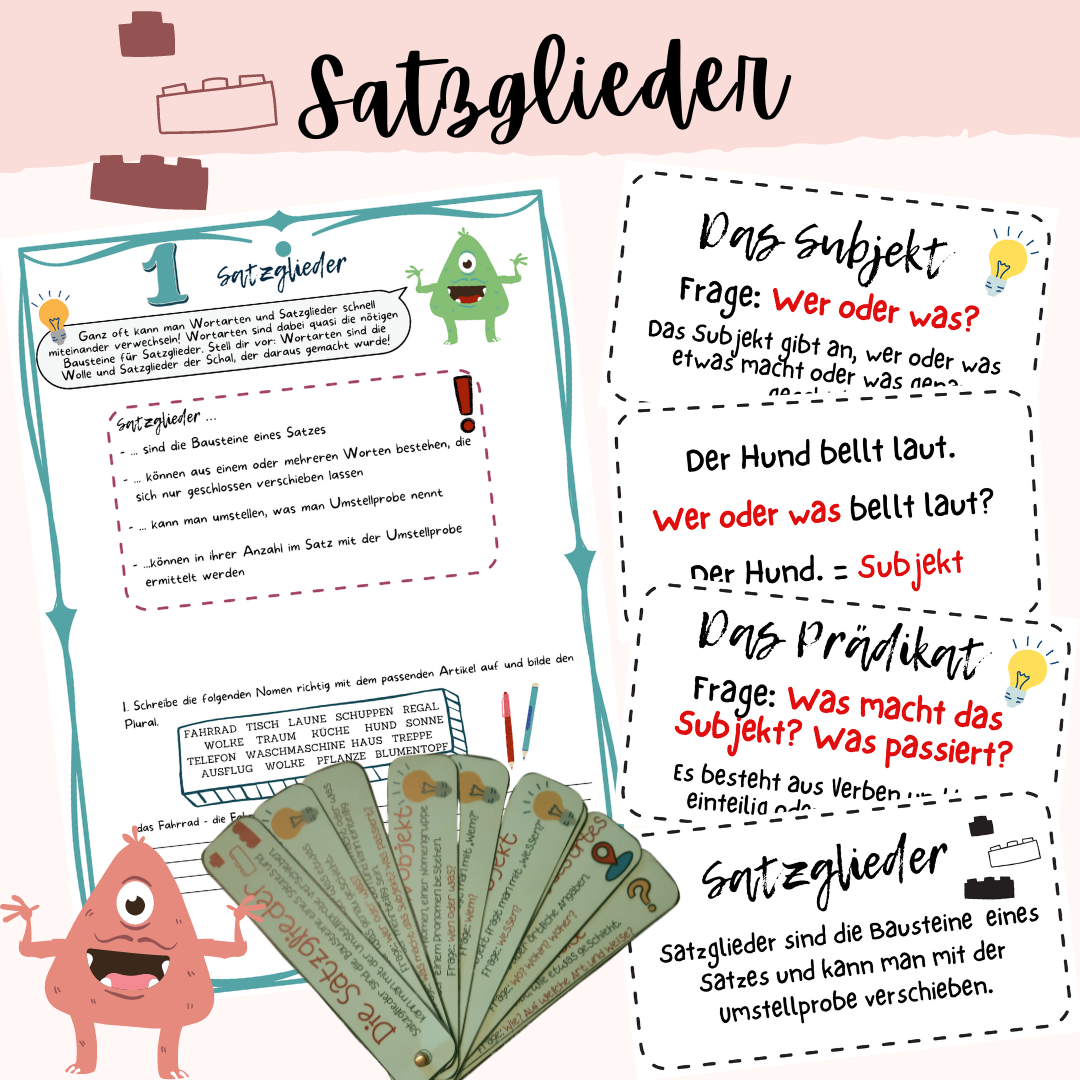 Satzglieder
1
Satzglieder
Ganz oft kann man Wortarten und Satzglieder schnell
miteinander verwechseln! Wortarten sind dabei quasi die nötigen
Bausteine für Satzglieder. Stell dir vor: Wortarten sind die
Wolle und Satzglieder der Schal, der daraus gemacht wurde!
Satzglieder ...
- ... sind die Bausteine eines Satzes
- ... können aus einem oder mehreren Worten bestehen, die
sich nur geschlossen verschieben lassen
- ... kann man umstellen, was man Umstellprobe nennt
- ...können in ihrer Anzahl im Satz mit der Umstellprobe
ermittelt werden
1. Schreibe die folgenden Nomen richtig mit dem passenden Artikel auf und bilde den
Plural.
FAHRRAD TISCH LAUNE SCHUPPEN REGAL
WOLKE TRAUM KÜCHE HUND SONNE
TELEFON WASCHMASCHINE HAUS TREPPE
AUSFLUG WOLKE PFLANZE BLUMENTOPF
das Fahrrad - die
Das Subjekt
Frage: Wer oder was?
Das Subjekt gibt an, wer oder was
etwas macht oder was
Der Hund bellt laut.
Wer oder was bellt laut?
Der Hund. = Subjekt
Das Prädikat
Frage: Was macht das
Subjekt? Was passiert?
Es besteht aus Verben
einteilig
Satzglieder
Satzglieder sind die Bausteine eines
Satzes und kann man mit der
Umstellprobe verschieben.
Die Satzglieder
Frage: wen oder was?
Frage: Wem?
Frage: Wessen?
Frage: Wo? Wohin? Woher?
Frage: Wie? Auf welche Art und Weise?